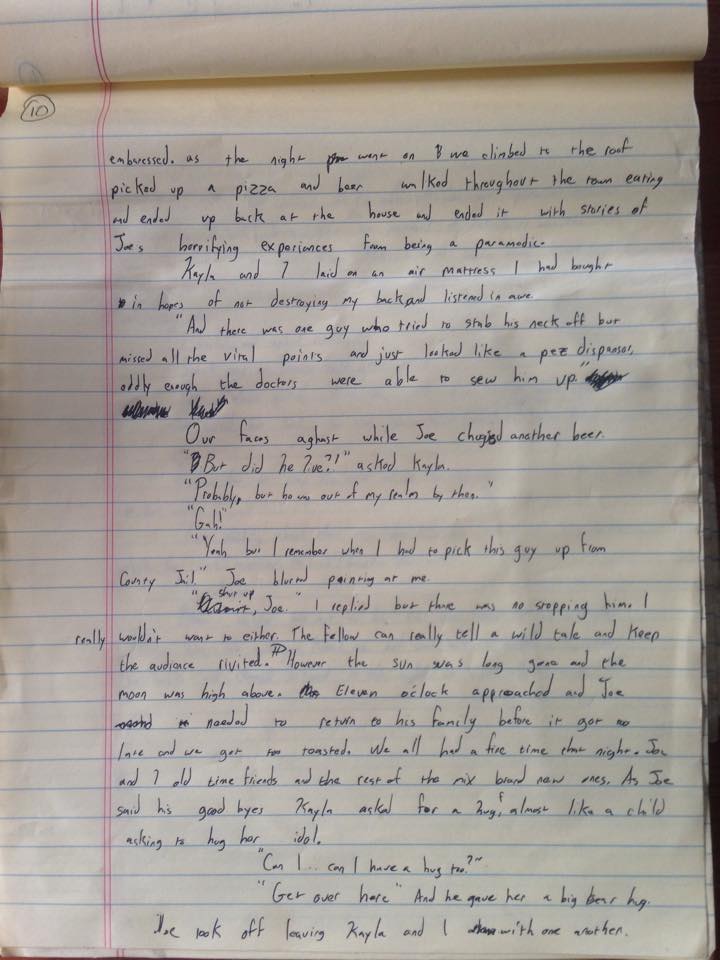 10
embaressed. as the night went on & we climbed to the roof
picked up a pizza and beer walked throughout the town eating
and ended up back at the house and ended it with stories of
Joes horrifying experiances from being a paramedic.
Kayla and I laid on an air mattress I had bought
in hopes of not destroying my back and listened in awe.
"And there was one guy who tried to stab his neck off but
missed all the vital points and just looked like a pez dispansor,
oddly enough the doctors were able to sew him up."
Our faces aghast while Joe chugged another beer.
"But did he live?!" asked Kayla.
"Probably, but he was out of my realm by then."
"Gah!"
"Yeah but I remember when I had to pick this guy up from
County Jail." Joe blured pointing at me.
"shut up, Joe." I replied but there was no stopping him. I
really wouldn't want to either. The fellow can really tell a wild tale and keep
the audience rivited. However the sun was long gone and the
moon was high above. Eleven o'clock approached and Joe
needed to return to his family before it got too
late and we got too toasted. We all had a fine time that night. Joe
and I old time friends and the rest of the mix brand new ones. As Joe
said his good byes Kayla asked for a hug, almost like a child
asking to hug her idol.
"Can I... can I have a hug too?"
"Get over here" And he gave her a big bear hug.
Joe took off leaving Kayla and I with one another.